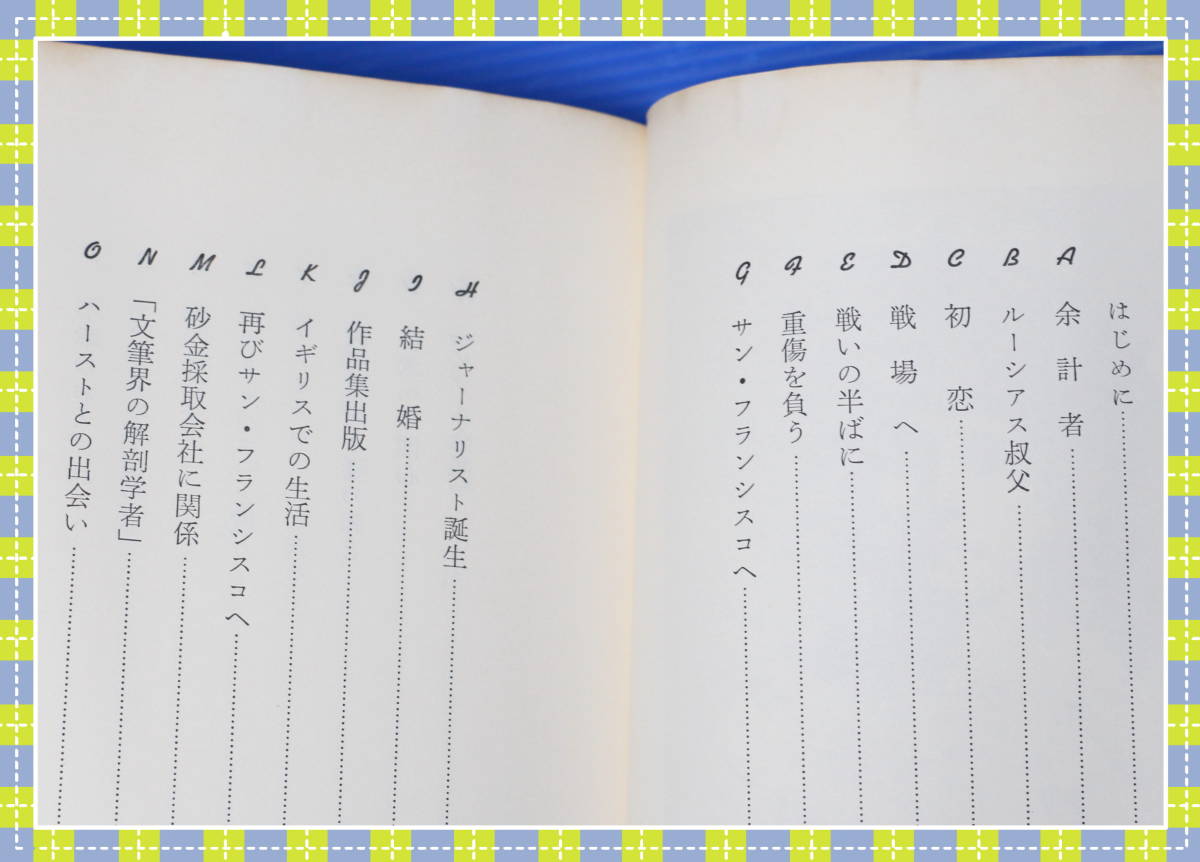 はじめに
A 余計者
B ルーシアス叔父
C 初恋
D 戦場へ
E 戦いの半ばに
F 重傷を負う
G サン・フランシスコへ
H ジャーナリスト誕生
I 結婚
J 作品集出版
K イギリスでの生活
L 再びサン・フランシスコへ
M 砂金採取会社に関係
N 「文筆界の解剖学者」
O ハーストとの出会い